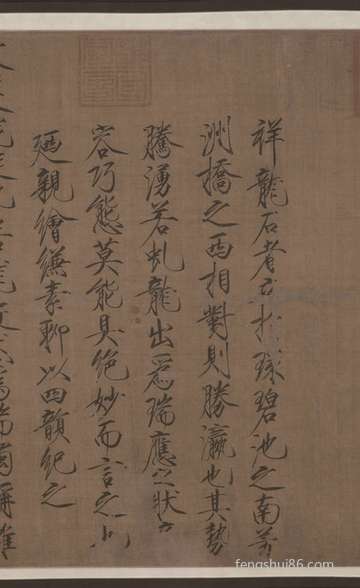 祥龍石者立於環碧池之南芳
洲橋之西相對則勝瀛也其勢
騰湧若虬龍出爲瑞應之狀奇
容巧態莫能具絶妙而言之也
廼親繪縑素聊以四韻紀之
fengshui86.com